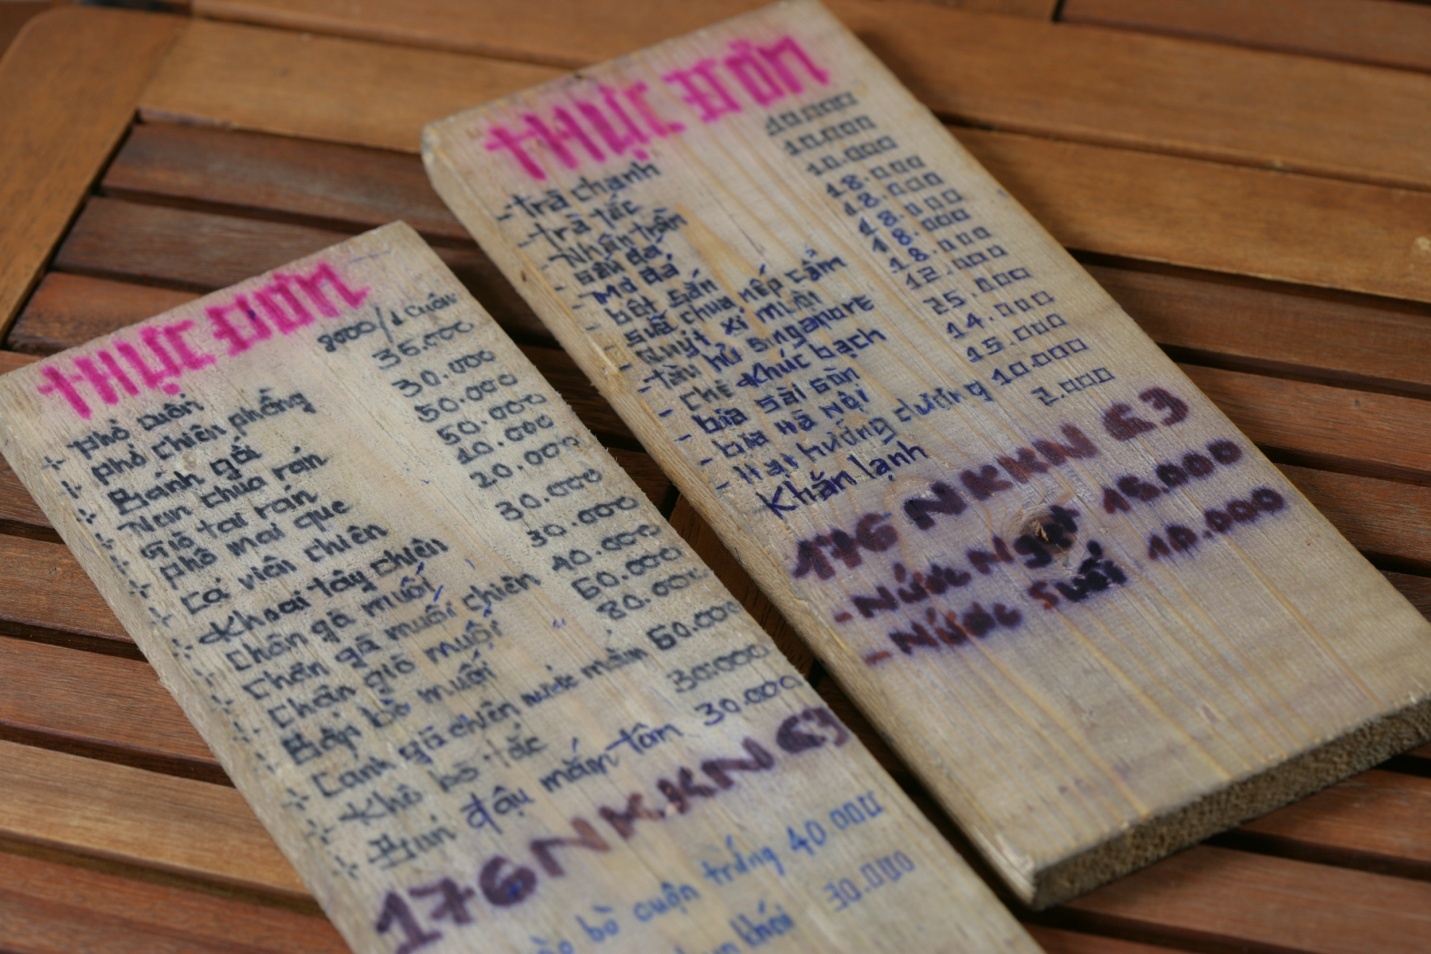 THỰC ĐƠN
+ phở cuốn 8000/1 cuốn
+ phở chiên phồng 35.000
+ Bánh gà 30.000
+ Nem chua rán 50.000
+ Giò tai rán 50.000
+ phô mai que 10.000
+ Cá viên chiên 20.000
+ Khoai tây chiên 30.000
+ Chân gà muối 30.000
+ Chân gà muối chiên 40.000
+ Chân giò muối 60.000
+ Bắp bò muối 80.000
+ Cánh gà chiên nước mắm 60.000
+ Khô bò tắc 30.000
+ Bún đậu mắm tôm 30.000
176 N K.KN C3
bò cuộn trứng 40.000
khói 30.000
THỰC ĐƠN
- trà chanh 10.000
- trà tắc 10.000
- Nhân trần 10.000
- Sấu đá 18.000
- Mơ đá 18.000
- bột sắn 18.000
- sữa chua nếp cẩm 18.000
- Quýt xí muội 18.000
- tàu hủ singapore 12.000
- Chè khúc bạch 25.000
- bia sài gòn 14.000
- bia hà nội 15.000
- Hạt hướng dương 10.000
Khăn lạnh 2.000
176 N KKN C3
- Nước Ngọt 15.000
- Nước suối 10.000